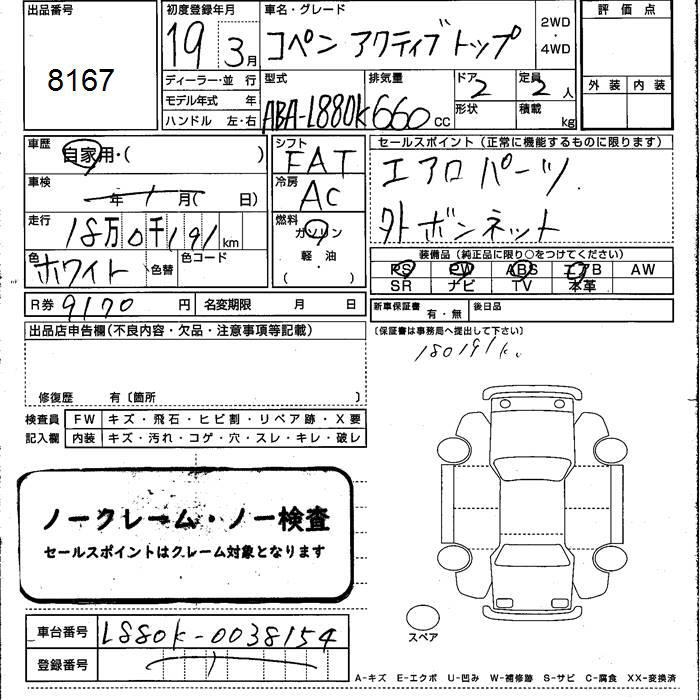 出品番号
8167
初度登録年月
19 3月
車名・グレード
コペン アクティブトップ
2WD
・
4WD
評価点
外装 内装
ディーラー・並 行
モデル年式 年
ハンドル 左・右
型式
ABA-L880K
排気量
660 cc
ドア
2
形状
定員
2 人
積載
kg
車歴
自家用・( )
車検
年 月( 日)
走行
18万0千191 km
色
ホワイト
色替
色コード
シフト
FAT
冷房
AC
燃料
ガソリン
軽・油
( )
セールスポイント(正常に機能するものに限ります)
エアロパーツ
外ボンネット
装備品(純正品に限り○をつけてください)
PS PW ABS エアB AW
SR ナビ TV 本革
R券 9170 円 名変期限 月 日
新車保証書
有・無
後日品
(保証書は事務局へ提出して下さい)
180191k
出品店申告欄(不良内容・欠品・注意事項等記載)
修復歴 有〔箇所 〕
検査員 FW キズ・飛石・ヒビ割・リペア跡・X要
記入欄 内装 キズ・汚れ・コゲ・穴・スレ・キレ・破レ
ノークレーム・ノー検査
セールスポイントはクレーム対象となります
スペア
車台番号 L880K-0038154
登録番号
A-キズ E-エクボ U-凹み W-補修跡 S-サビ C-腐食 XX-変換済